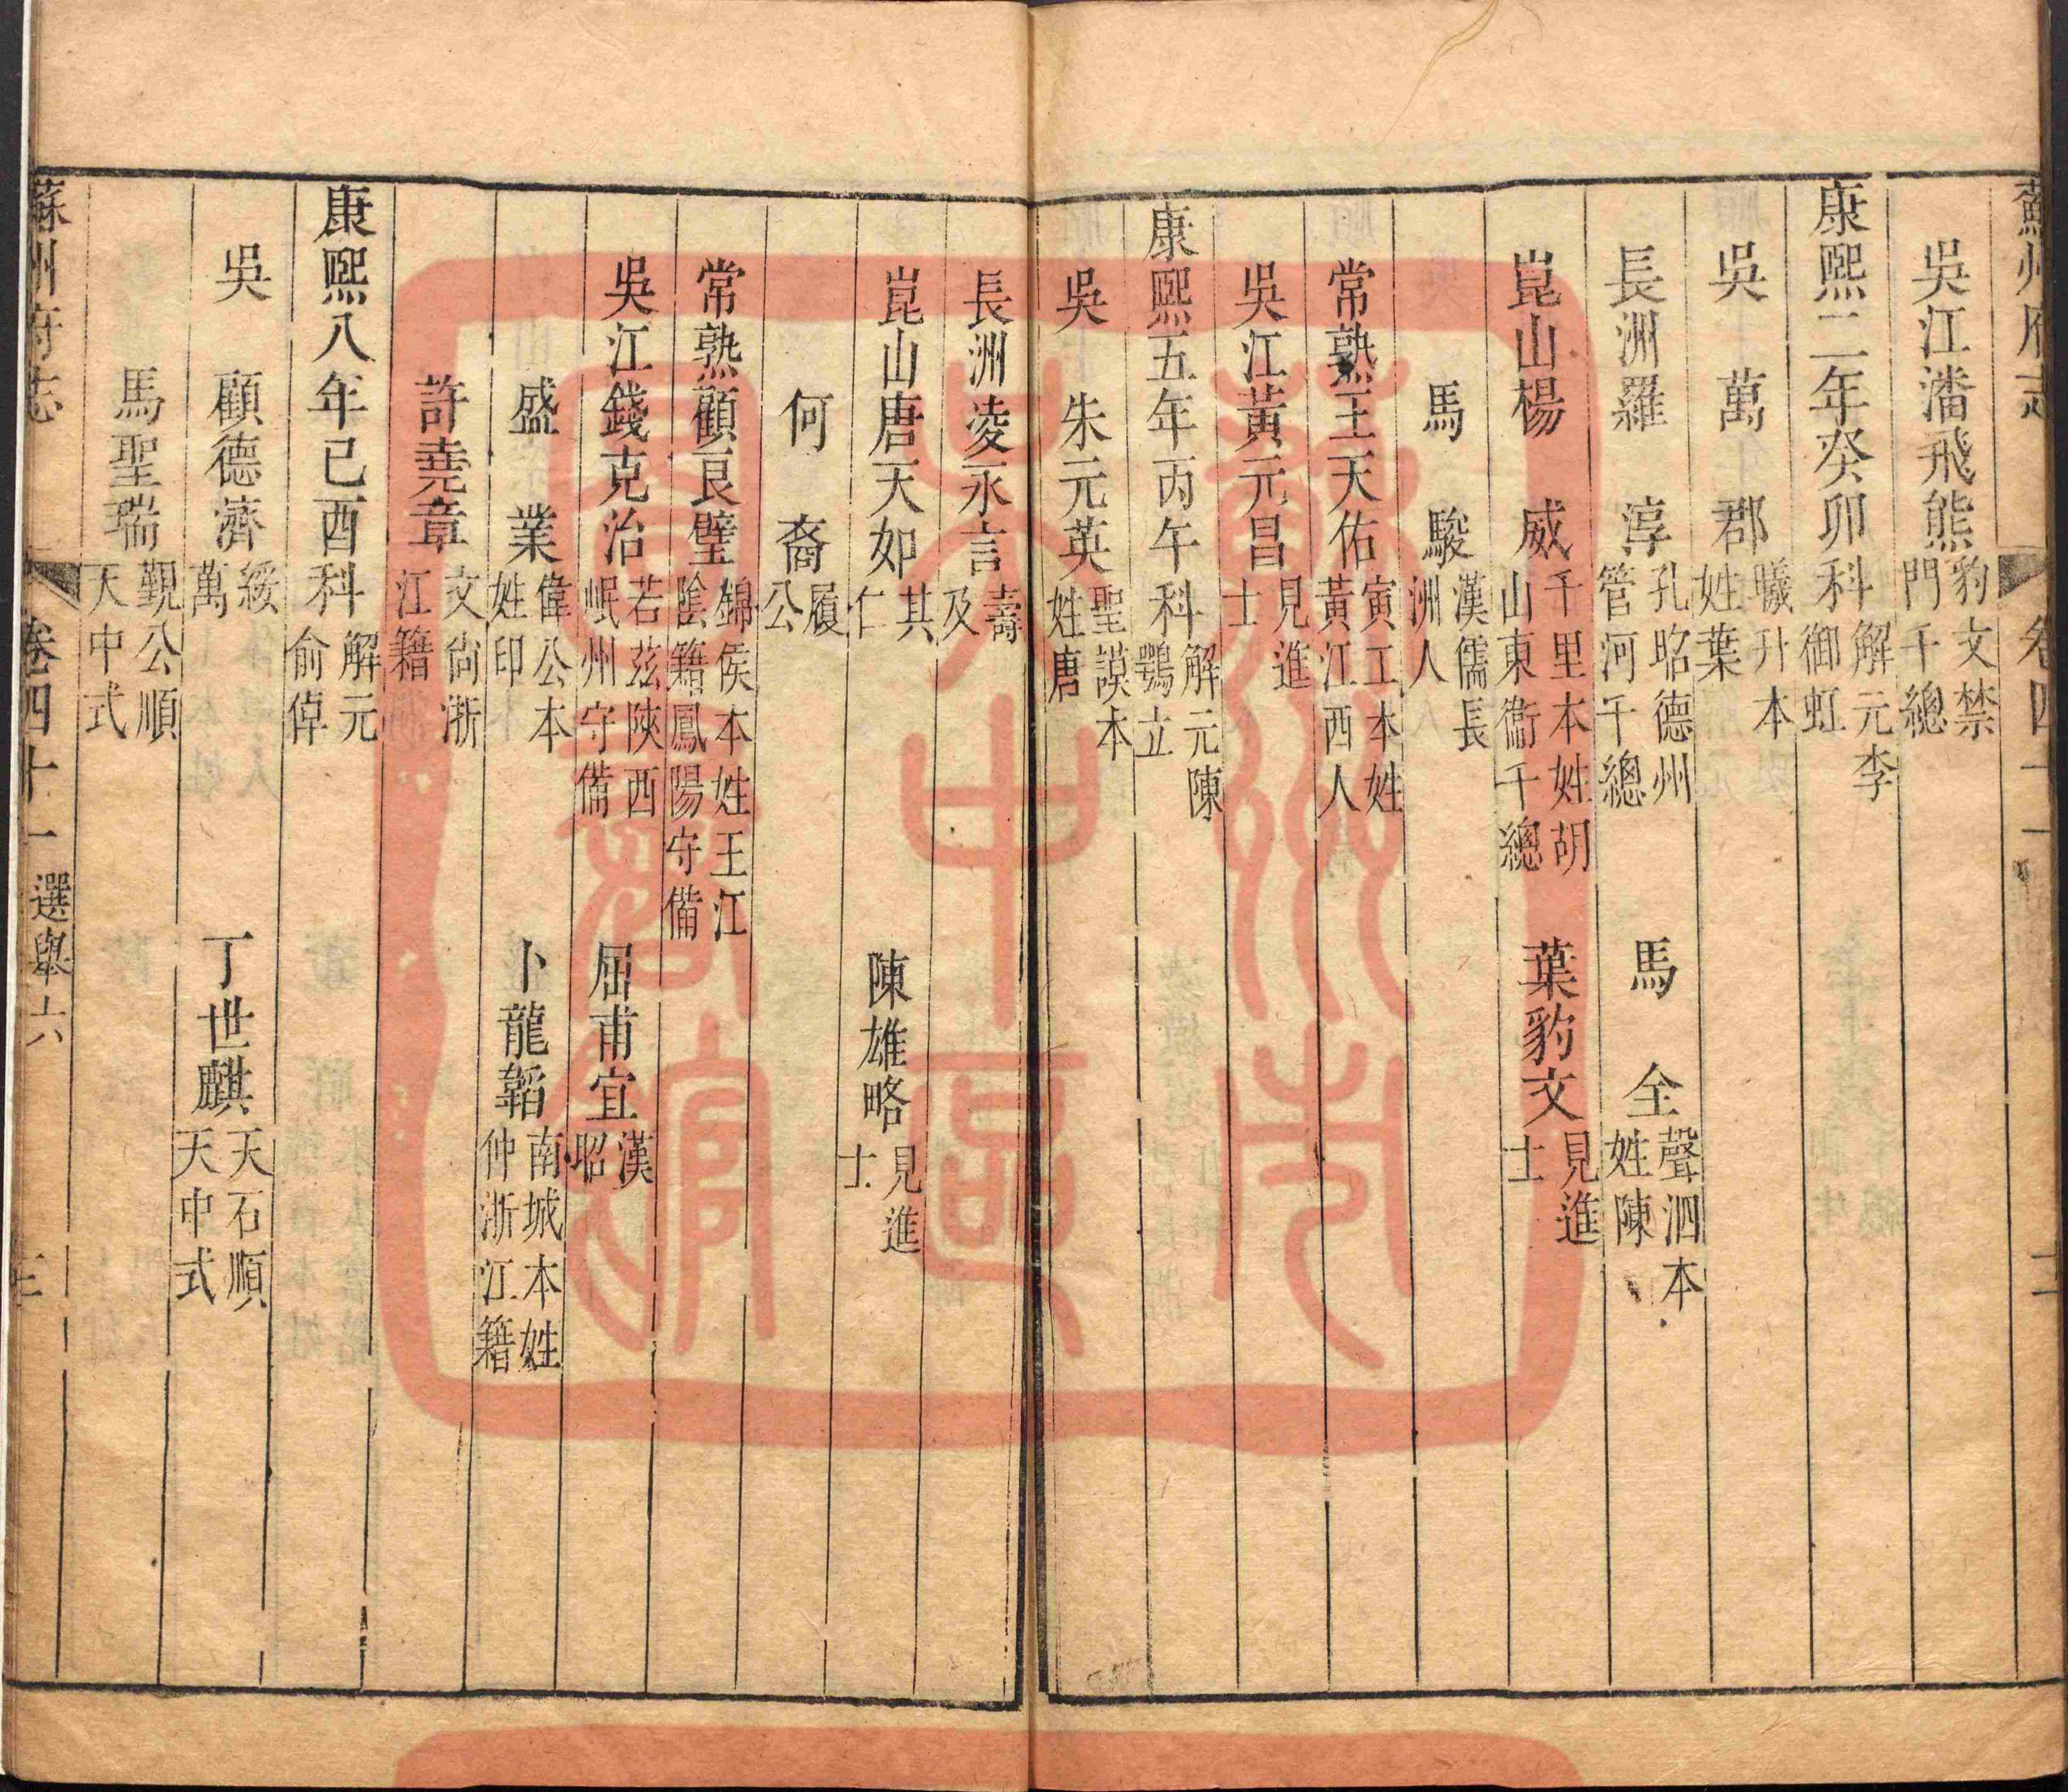 蘇州府志 卷四十 二
吳江潘飛熊豹文禁門千總
康熙二年癸卯科解元李御虹
吳 萬 郡曦升本姓葉
長洲羅 淳孔昭德州管河千總 馬 全聲泗本姓陳
崑山楊 威千里本姓胡山東衞千總 葉豹文見進士
馬 駿漢儒長洲人
常熟王天佑寅工本姓黃江西人
吳江黃元昌見進士
康熙五年丙午科解元陳鶚立
吳 朱元英聖謨本姓唐
長洲凌永言壽及
崑山唐天如其仁 陳雄略見進士
何 裔履公
常熟顧良璧錦侯本姓王江陰籍鳳陽守備
吳江錢克治若茲陝西岷州守備 屈甫宜漢昭
盛 業偉公本姓印 卜龍韜南城本姓仲浙江籍
許堯章文尙浙江籍
康熙八年己酉科解元俞倬
吳 顧德濟綏萬 丁世麒天石順天中式
馬聖瑞覲公順天中式
蘇州府志 卷四十一 選舉六 三